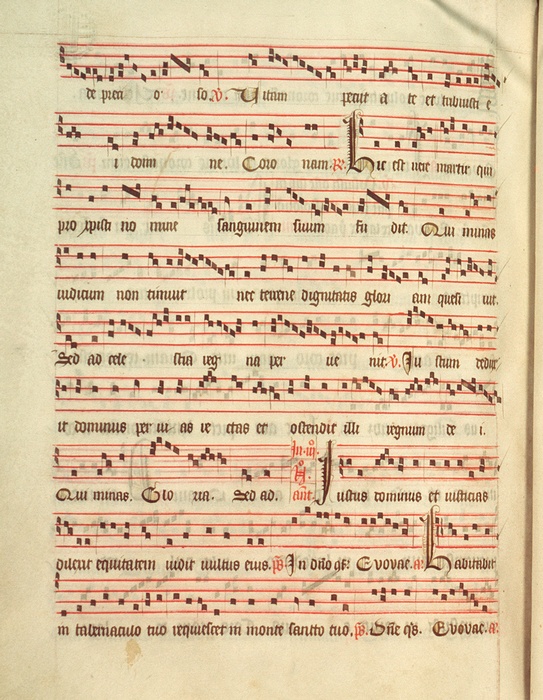 de preci o so. V. Vitam petiit a te et tribuisti e
i domi ne. Coro nam. R. Hic est vere martir qui
pro xpisti no mine sanguinem suum fu dit. Qui minas
iudicum non timuit nec terrene dignitatis glori am quesi vit.
Sed ad cele stia reg na per ve nit. V. Iu stum dedux
it dominus per vi as re ctas et ostendit illi regnum de i.
Qui minas. Glo ria. Sed ad. In iii. N. ant. Iustus dominus et iusticias
dilexit equitatem vidit vultus eius. ps. In dno qfi. Evovae. a. Habitabit
in tabernaculo tuo requiescet in monte sancto tuo. ps. Dne qs. Evovae. a.